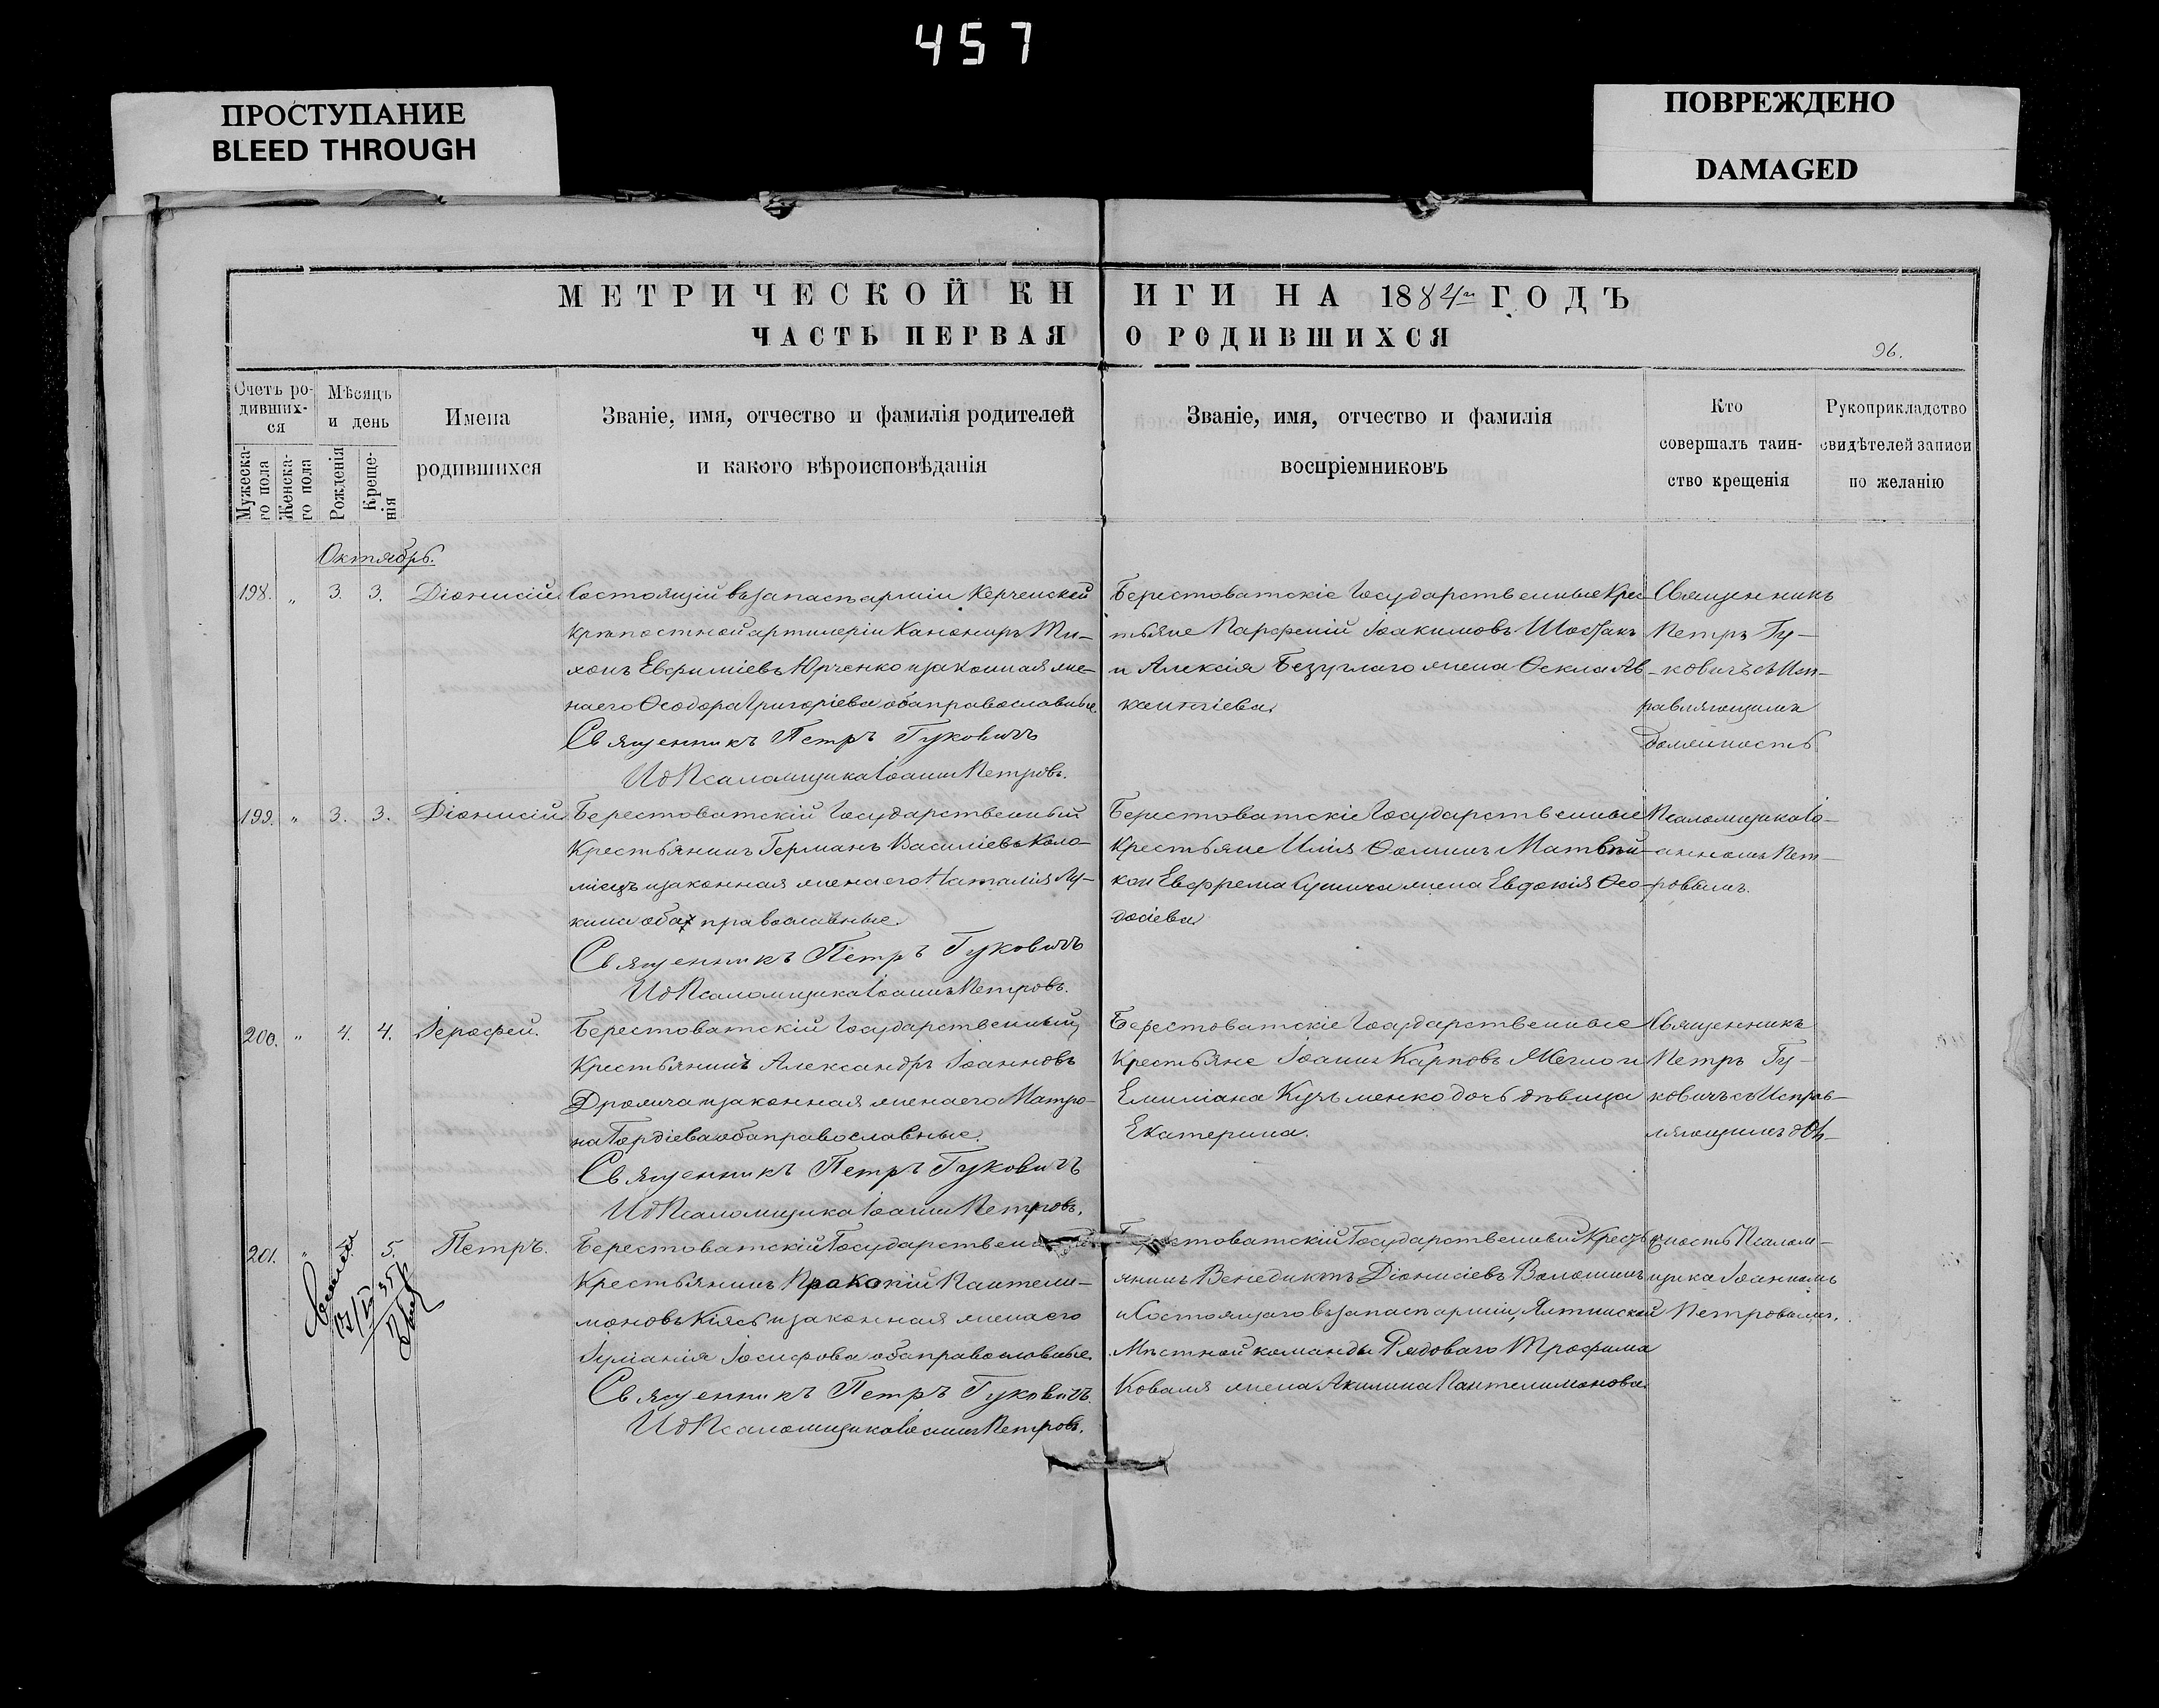 457
ПРОСТУПАНИЕ
BLEED THROUGH
ПОВРЕЖДЕНО
DAMAGED
МЕТРИЧЕСКОЙ КНИГИ НА 1884й ГОДЪ
ЧАСТЬ ПЕРВАЯ О РОДИВШИХСЯ
96.
Счетъ ро-
дивших-
ся
Мужеска-
го пола
Женска-
го пола
Мѣсяцъ
и день
Рожденія
Креще-
нія
Имена
родившихся
Званіе, имя, отчество и фамилія родителей
и какого вѣроисповѣданія
Званіе, имя, отчество и фамилія
воспріемниковъ
Кто
совершалъ таин-
ство крещенія
Рукоприкладство
свидѣтелей записи
по желанію
Октябрь.
198. " 3. 3. Діонисій
Состоящій въ запасѣ арміи Керченской
крѣпостной артилеріи Канониръ Ти-
хонъ Евфиміевъ Юрченко и законная же-
на его Ѳеодора Григоріева оба православные
Священникъ Петръ Гуковичъ
И д Псаломщика Іоаннъ Петровъ.
Берестоватскіе Государственные Крес
тьяне Парфеній Іоакимовъ Шостакъ
и Алексія Безуглаго жена Ѳекла Ав-
кентіева
Священникъ
Петръ Гу-
ковичъ съ Исп-
равляющимъ
должность
199. " 3. 3. Діонисій
Берестоватскій Государственный
Крестьянинъ Германъ Василіевъ Коло-
міецъ и законная жена его Наталія Лу-
кина оба православные.
Священникъ Петръ Гуковичъ
И д Псаломщика Іоаннъ Петровъ.
Берестоватскіе Государственные
Крестьяне Илія Ѳоминъ Матвѣй-
ко и Евфрема жена Евдокія Ѳео-
досіева
Псаломщика Іо-
анномъ Пет-
ровымъ.
200. " 4. 4. Іерофей.
Берестоватскій Государственный
Крестьянинъ Александръ Іоанновъ
и законная жена его Матро-
на Гордіева оба православные.
Священникъ Петръ Гуковичъ
И д Псаломщика Іоаннъ Петровъ.
Берестоватскіе Государственные
Крестьяне Іоаннъ Карповъ и
Емиліана Кузьменко дочь дѣвица
Екатерина.
Священникъ
Петръ Гу-
ковичъ съ Исправ-
ляющимъ
201. " 5. 5. Петръ.
Берестоватскій Государственный
Крестьянинъ Прокопій Пантели-
моновъ Кіясь и законная жена его
Іуліанія Іосифова оба православные.
Священникъ Петръ Гуковичъ
И д Псаломщика Іоаннъ Петровъ.
Берестоватскій Государственный Кресть
янинъ Венедиктъ Діонисіевъ Волошинъ
и Состоящаго въ запасѣ арміи, Ялтинской
Мѣстной команды Рядоваго Трофима
Коваля жена Акилина Пантелимонова
ность Псалом-
щика Іоанномъ
Петровымъ.